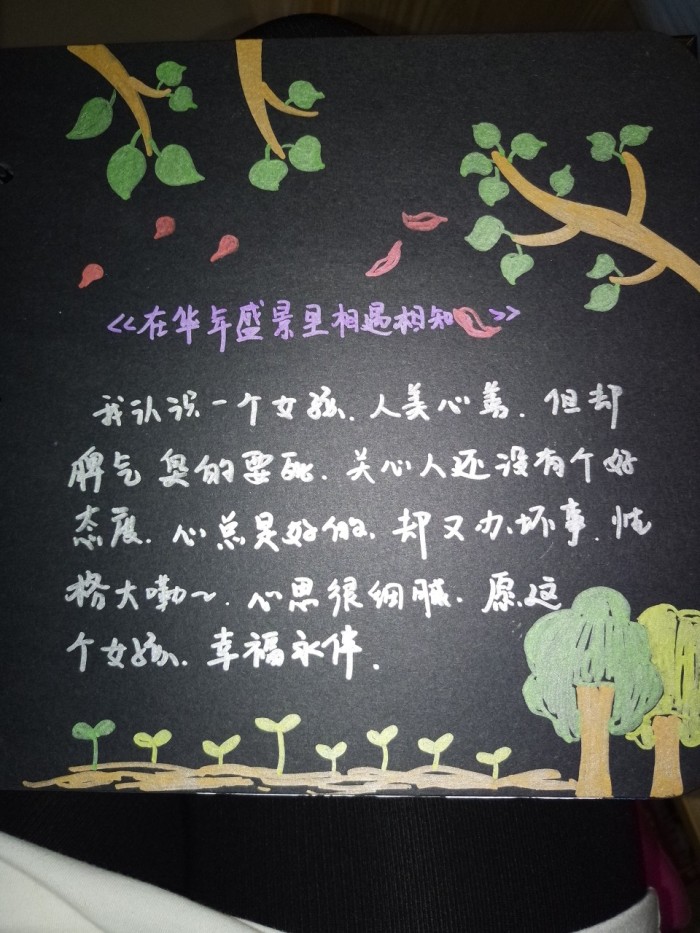 <<在华年盛景里相遇相知>>
我认识一个女孩、人美心善、但却
脾气臭的要死、关心人还没有个好
态度、心总是好的、却又办坏事、性
格大嘞~、心思很细腻、愿这
个女孩、幸福永伴、